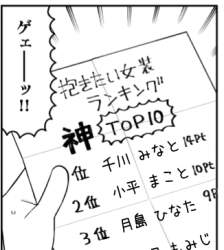 ゲェーッ!!
抱きたい女装
ランキング
神 TOP10
位 千川 みなと 14Pt
2位 小平 まこと 10Pt
3位 月島 ひなた 9P
もみじ